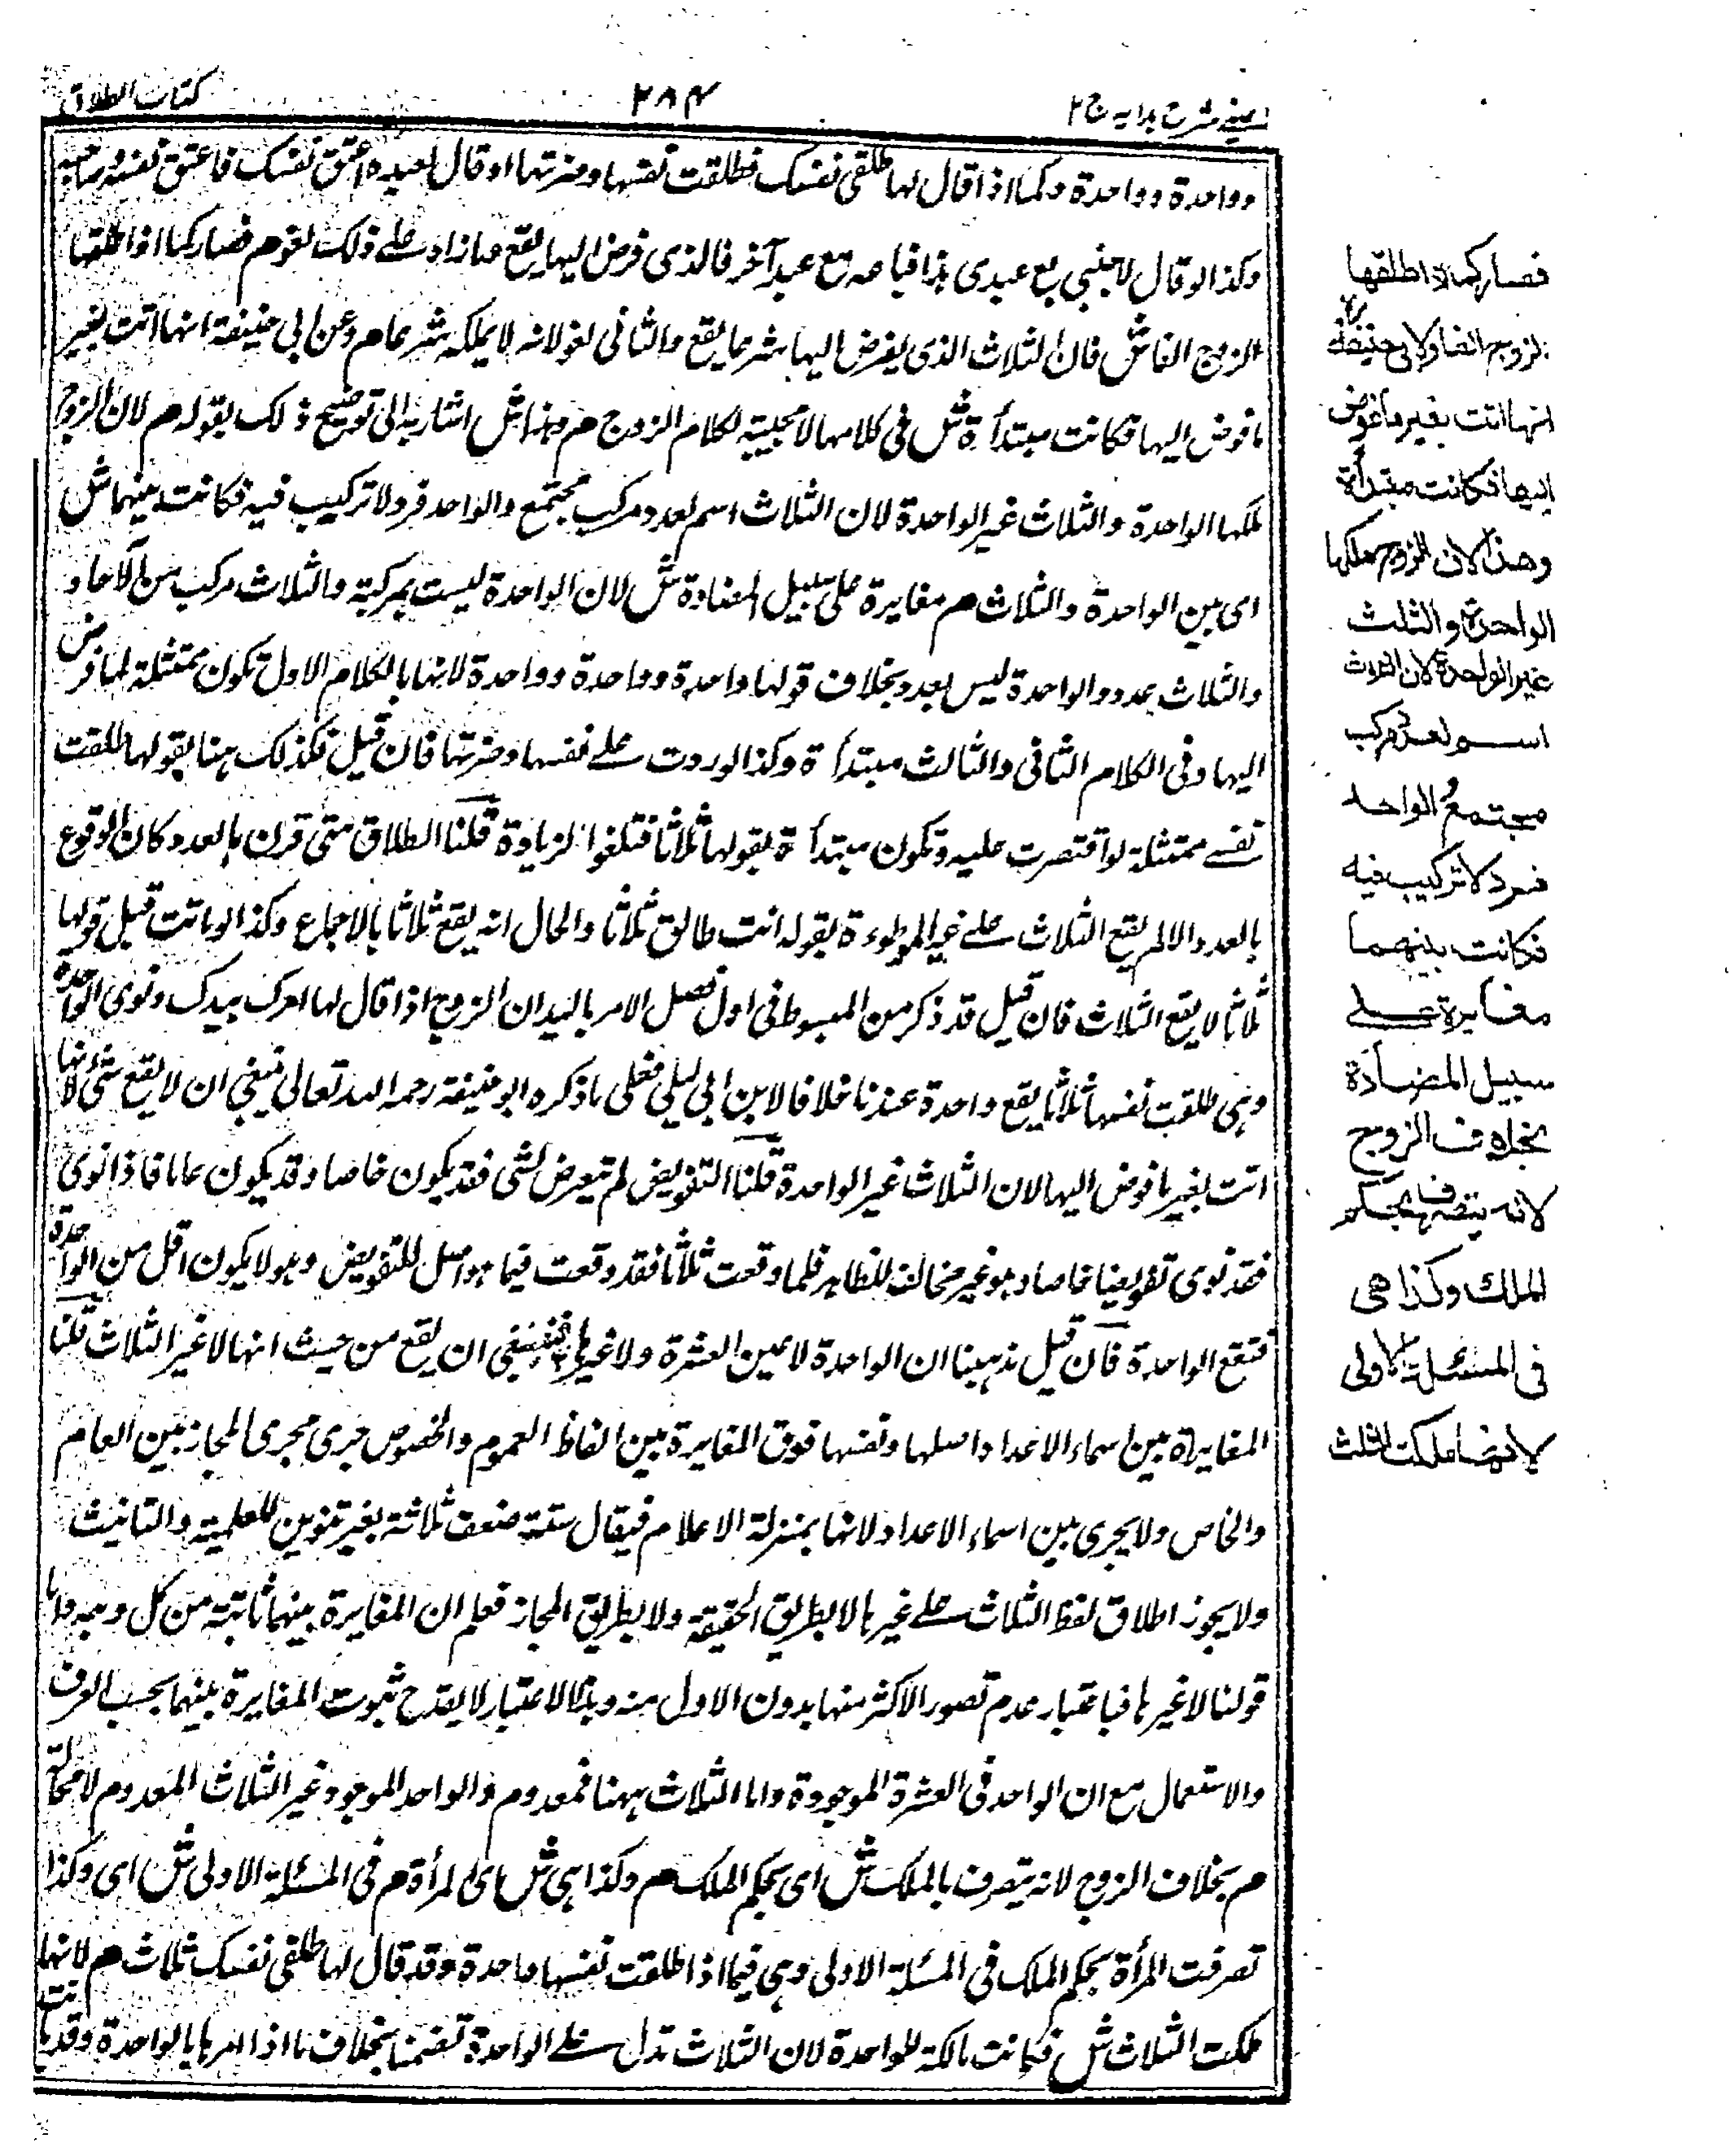 عینے شرح ہدایہ ج ۲
۲۸۴
کتاب الطلاق
وواحدة وواحدة وکما اذا قال لها طلقی نفسک فطلقت نفسها وضرتها او قال لعبده اعتق نفسک فاعتق نفسه وصاحبه
وکذا لو قال لاجنبی بع عبدی هذا فباعه مع عبد آخر فالذی فوض الیها یقع وما زاد علے ذلک لغو م فصار کما اذا طلقها
الزوج الفا ش فان الثلاث الذی یفوض الیها شرعا یقع والثانی لغو لانه لا یملکه شرعا م وعن ابی حنیفة انها اتت بغیر
ما فوض الیها فکانت مبتدأة ش فی کلامها لا مجیبة لکلام الزوج م وهذا ش اشار به الی توضیح ذلک بقوله م لان الزوج
ملکها الواحدة والثلاث غیر الواحدة لان الثلاث اسم لعدد مرکب مجتمع والواحد فرد لا ترکیب فیه فکانت بینهما ش
ای بین الواحدة والثلاث م مغایرة علی سبیل المضادة ش لان الواحدة لیست بمرکبة والثلاث مرکب من الآحاد
والثلاث عدد والواحدة لیس بعدد بخلاف قولها واحدة وواحدة وواحدة لانها بالکلام الاول تکون ممتثلة لما فوض
الیها وفی الکلام الثانی والثالث مبتدأة وکذا لو ردت علے نفسها وضرتها فان قیل فکذلک هنا بقولها طلقت
نفسے ممتثلة لو اقتصرت علیه وتکون مبتدأة بقولها ثلاثا فتلغو الزیادة قلنا الطلاق متی قرن بالعدد کان الوقوع
بالعدد والا لم یقع الثلاث علے غیر الموطوءة بقوله انت طالق ثلاثا والحال انه یقع ثلاثا بالاجماع وکذا لو ماتت قبل قولها
ثلاثا لا یقع الثلاث فان قیل قد ذکر من المبسوط فی اول فصل الامر بالید ان الزوج اذا قال لها امرک بیدک ونوی الواحدة
وهی طلقت نفسها ثلاثا یقع واحدة عندنا خلافا لابن ابی لیلی فعلی ما ذکره ابو حنیفة رحمه الله تعالی ینبغی ان لا یقع شئ لانها
اتت بغیر ما فوض الیها لان الثلاث غیر الواحدة قلنا التفویض لم یتعرض لشی فقد یکون خاصا وقد یکون عاما فاذا نوی
فقد نوی تفویضا خاصا وهو غیر مخالف للظاهر فلما وقعت ثلاثا فقد وقعت فیما هو اصل للتفویض وهو لا یکون اقل من الواحدة
فتقع الواحدة فان قیل مذهبنا ان الواحدة لا عین العشرة ولا غیرها فینبغی ان یقع من حیث انها لا غیر الثلاث قلنا
المغایرة بین اسماء الاعداد اصلها ونفسها فوق المغایرة بین الفاظ العموم والخصوص جری مجری المجاز بین العام
والخاص ولا یجری بین اسماء الاعداد لانها بمنزلة الاعلام فیقال ستة ضعف ثلاثة بغیر تنوین للعلمیة والتانیث
ولا یجوز اطلاق لفظ الثلاث علے غیرها لا بطریق الحقیقة ولا بطریق المجاز فعلم ان المغایرة بینهما ثابتة من کل وجه واما
قولنا لا غیرها فباعتبار عدم تصور الاکثر منها بدون الاول منه وهذا الاعتبار لا یقدح ثبوت المغایرة بینهما بحسب العرف
والاستعمال مع ان الواحد فی العشرة الموجودة واما الثلاث ههنا فمعدوم والواحد الموجود غیر الثلاث المعدوم لا محالة
م بخلاف الزوج لانه یتصرف بالملک ش ای بحکم الملک م وکذا هی ش ای المرأة م فی المسئلة الاولی ش ای وکذا
تصرفت المرأة بحکم الملک فی المسئلة الاولی وهی فیما اذا طلقت نفسها واحدة وقد قال لها طلقی نفسک ثلاث م لانها
ملکت الثلاث ش فکانت مالکة للواحدة لان الثلاث تدل علے الواحدة تضمنا بخلاف ما اذا امرها بالواحدة وقد اتت
فصار کما اذا طلقها
الزوج الفا ولابی حنیفة رح
انها اتت بغیر ما فوض
الیها فکانت مبتدأة
وهذا لان الزوج ملکها
الواحدة والثلث
غیر الواحدة لان الثلاث
اسم لعدد مرکب
مجتمع والواحد
فرد لا ترکیب فیه
فکانت بینهما
مغایرة علے
سبیل المضادة
بخلاف الزوج
لانه یتصرف بحکم
الملک وکذا هی
فی المسئلة الاولی
لانها ملکت الثلث